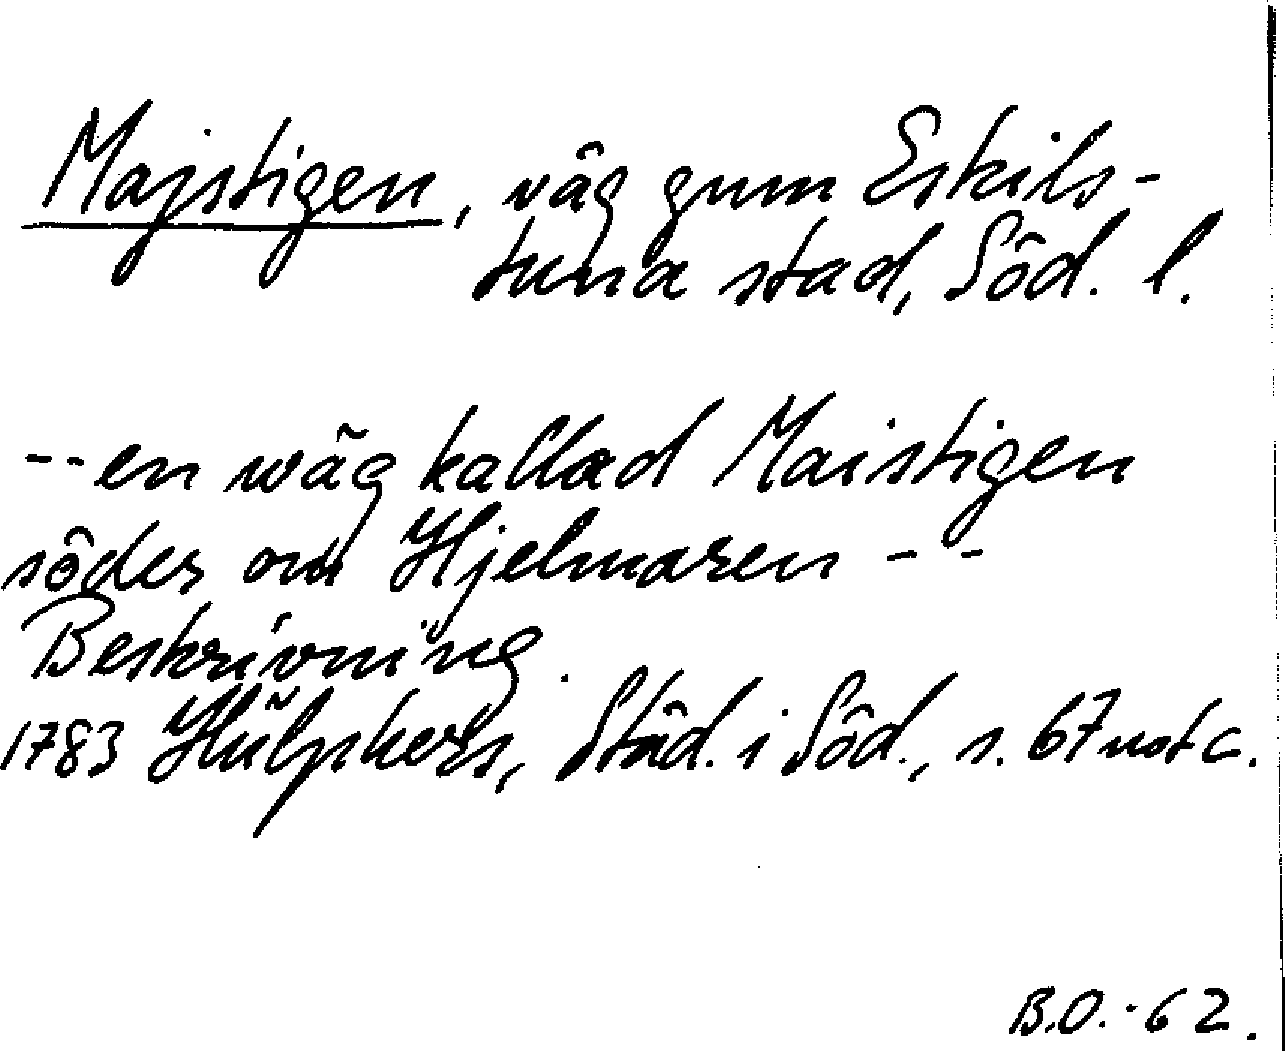 Majstigen, väg gnm Eskils-
tuna stad, Söd. l.
--en wäg kallad Maistigen
söder om Hjelmaren - -
Beskrivning.
1783 Hülphers, Städ. i Söd., s. 67 not c.
B.O.-62.